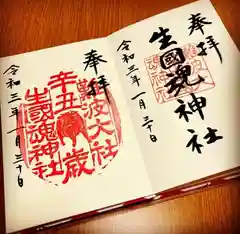 奉拝
生國魂神社
令和三年一月三十日
奉拝
難波大社
辛丑歳
生國魂神社
令和三年一月三十日